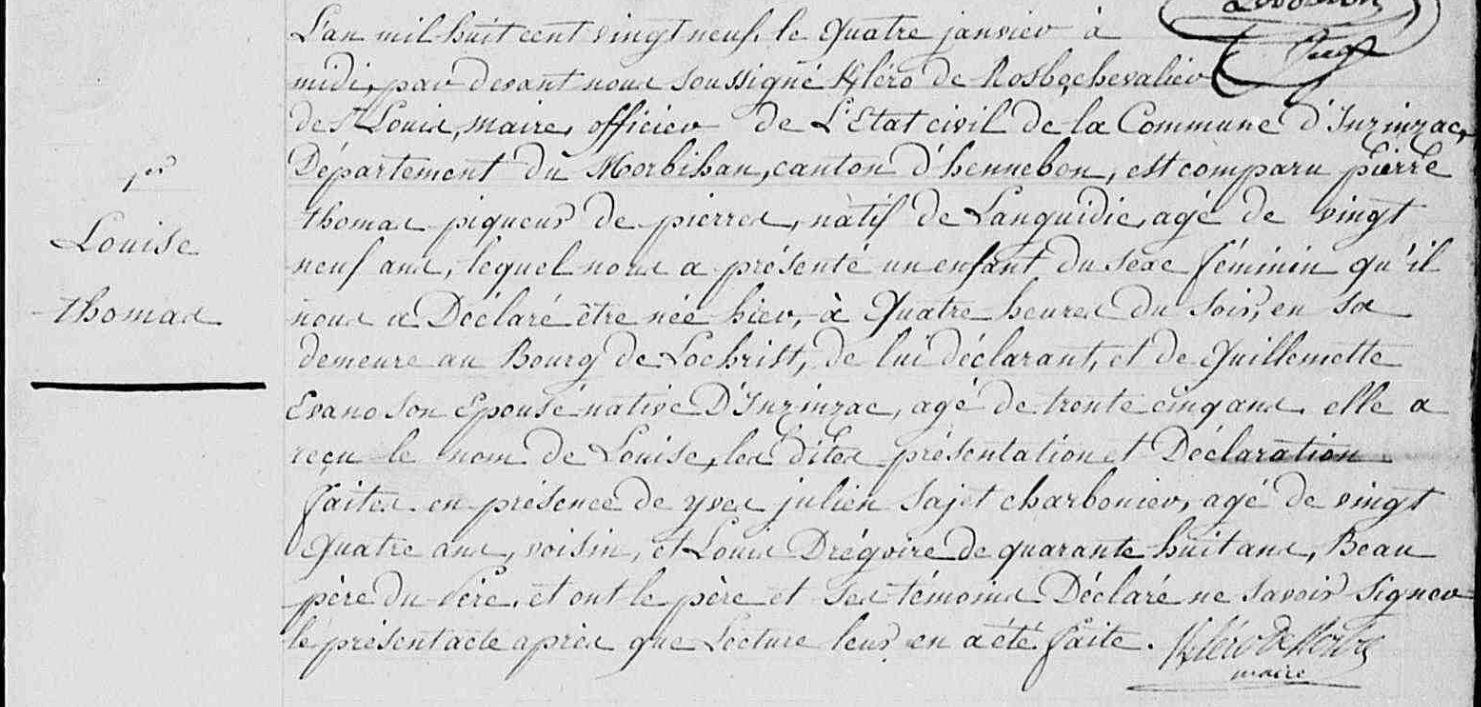 L'an mil huit cent vingt neuf, le quatre janvier à
midi, par devant nous soussigné Kléro de Rosbo, chevalier
de St Louis, maire, officier de L'Etat civil de la Commune d'Inzinzac,
Département du Morbihan, canton d'hennebon, est comparu pierre
thomas piqueur de pierres, natif de Languidic, agé de vingt
neuf ans, lequel nous a présenté un enfant du sexe féminin qu'il
nous a Déclaré être née hier, à quatre heures du soir, en sa
demeure au Bourg de Lochrist, de lui déclarant, et de Guillemette
Evano son Epouse native D'Inzinzac, agé de trente cinq ans. elle a
reçu le nom de Louise, les dites présentation et Déclaration
faites en présence de yves julien Sajet charbonier, agé de vingt
quatre ans, voisin, et Louis Drégoire de quarante huit ans, Beau
père du Père, et ont le père et ses témoins Déclaré ne savoir signer
le présent acte après que Lecture leur en a été faite.
maire
1er
Louise
thomas